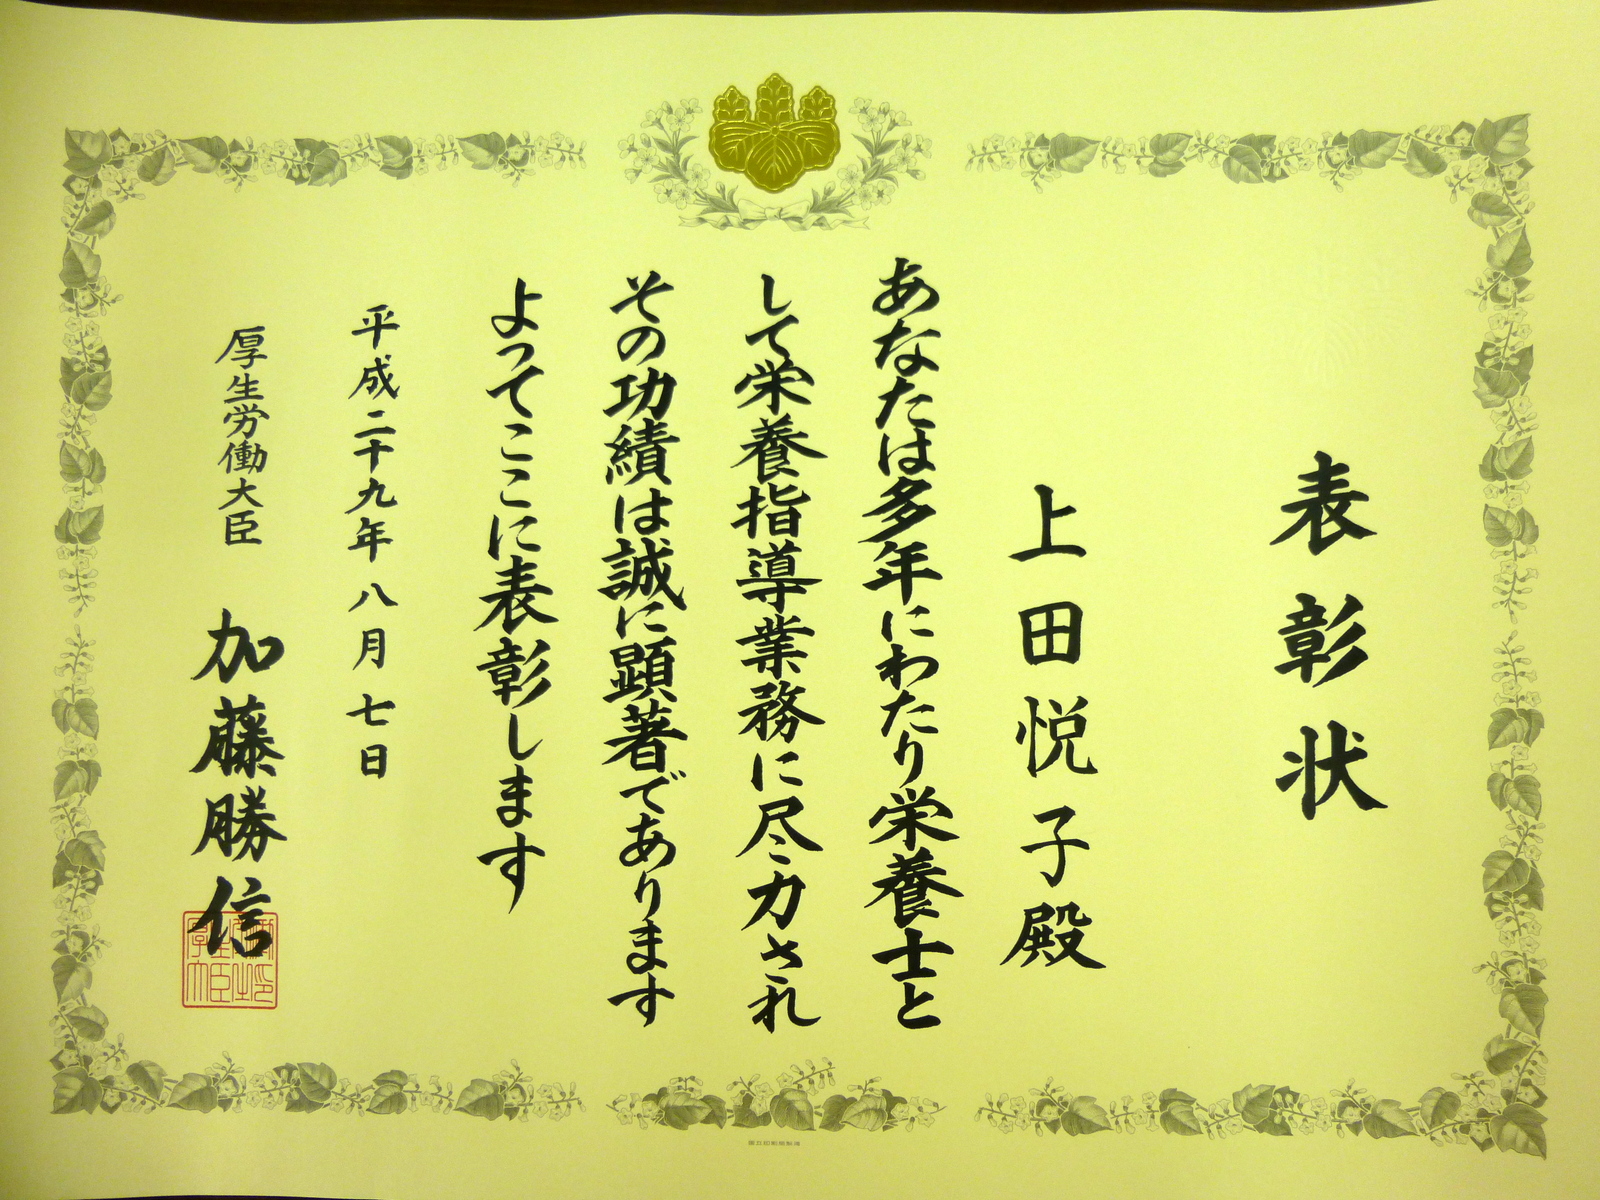 表彰状
上田悦子殿
あなたは多年にわたり栄養士と
して栄養指導業務に尽力され
その功績は誠に顕著であります
よってここに表彰します
平成二十九年八月七日
厚生労働大臣 加藤勝信